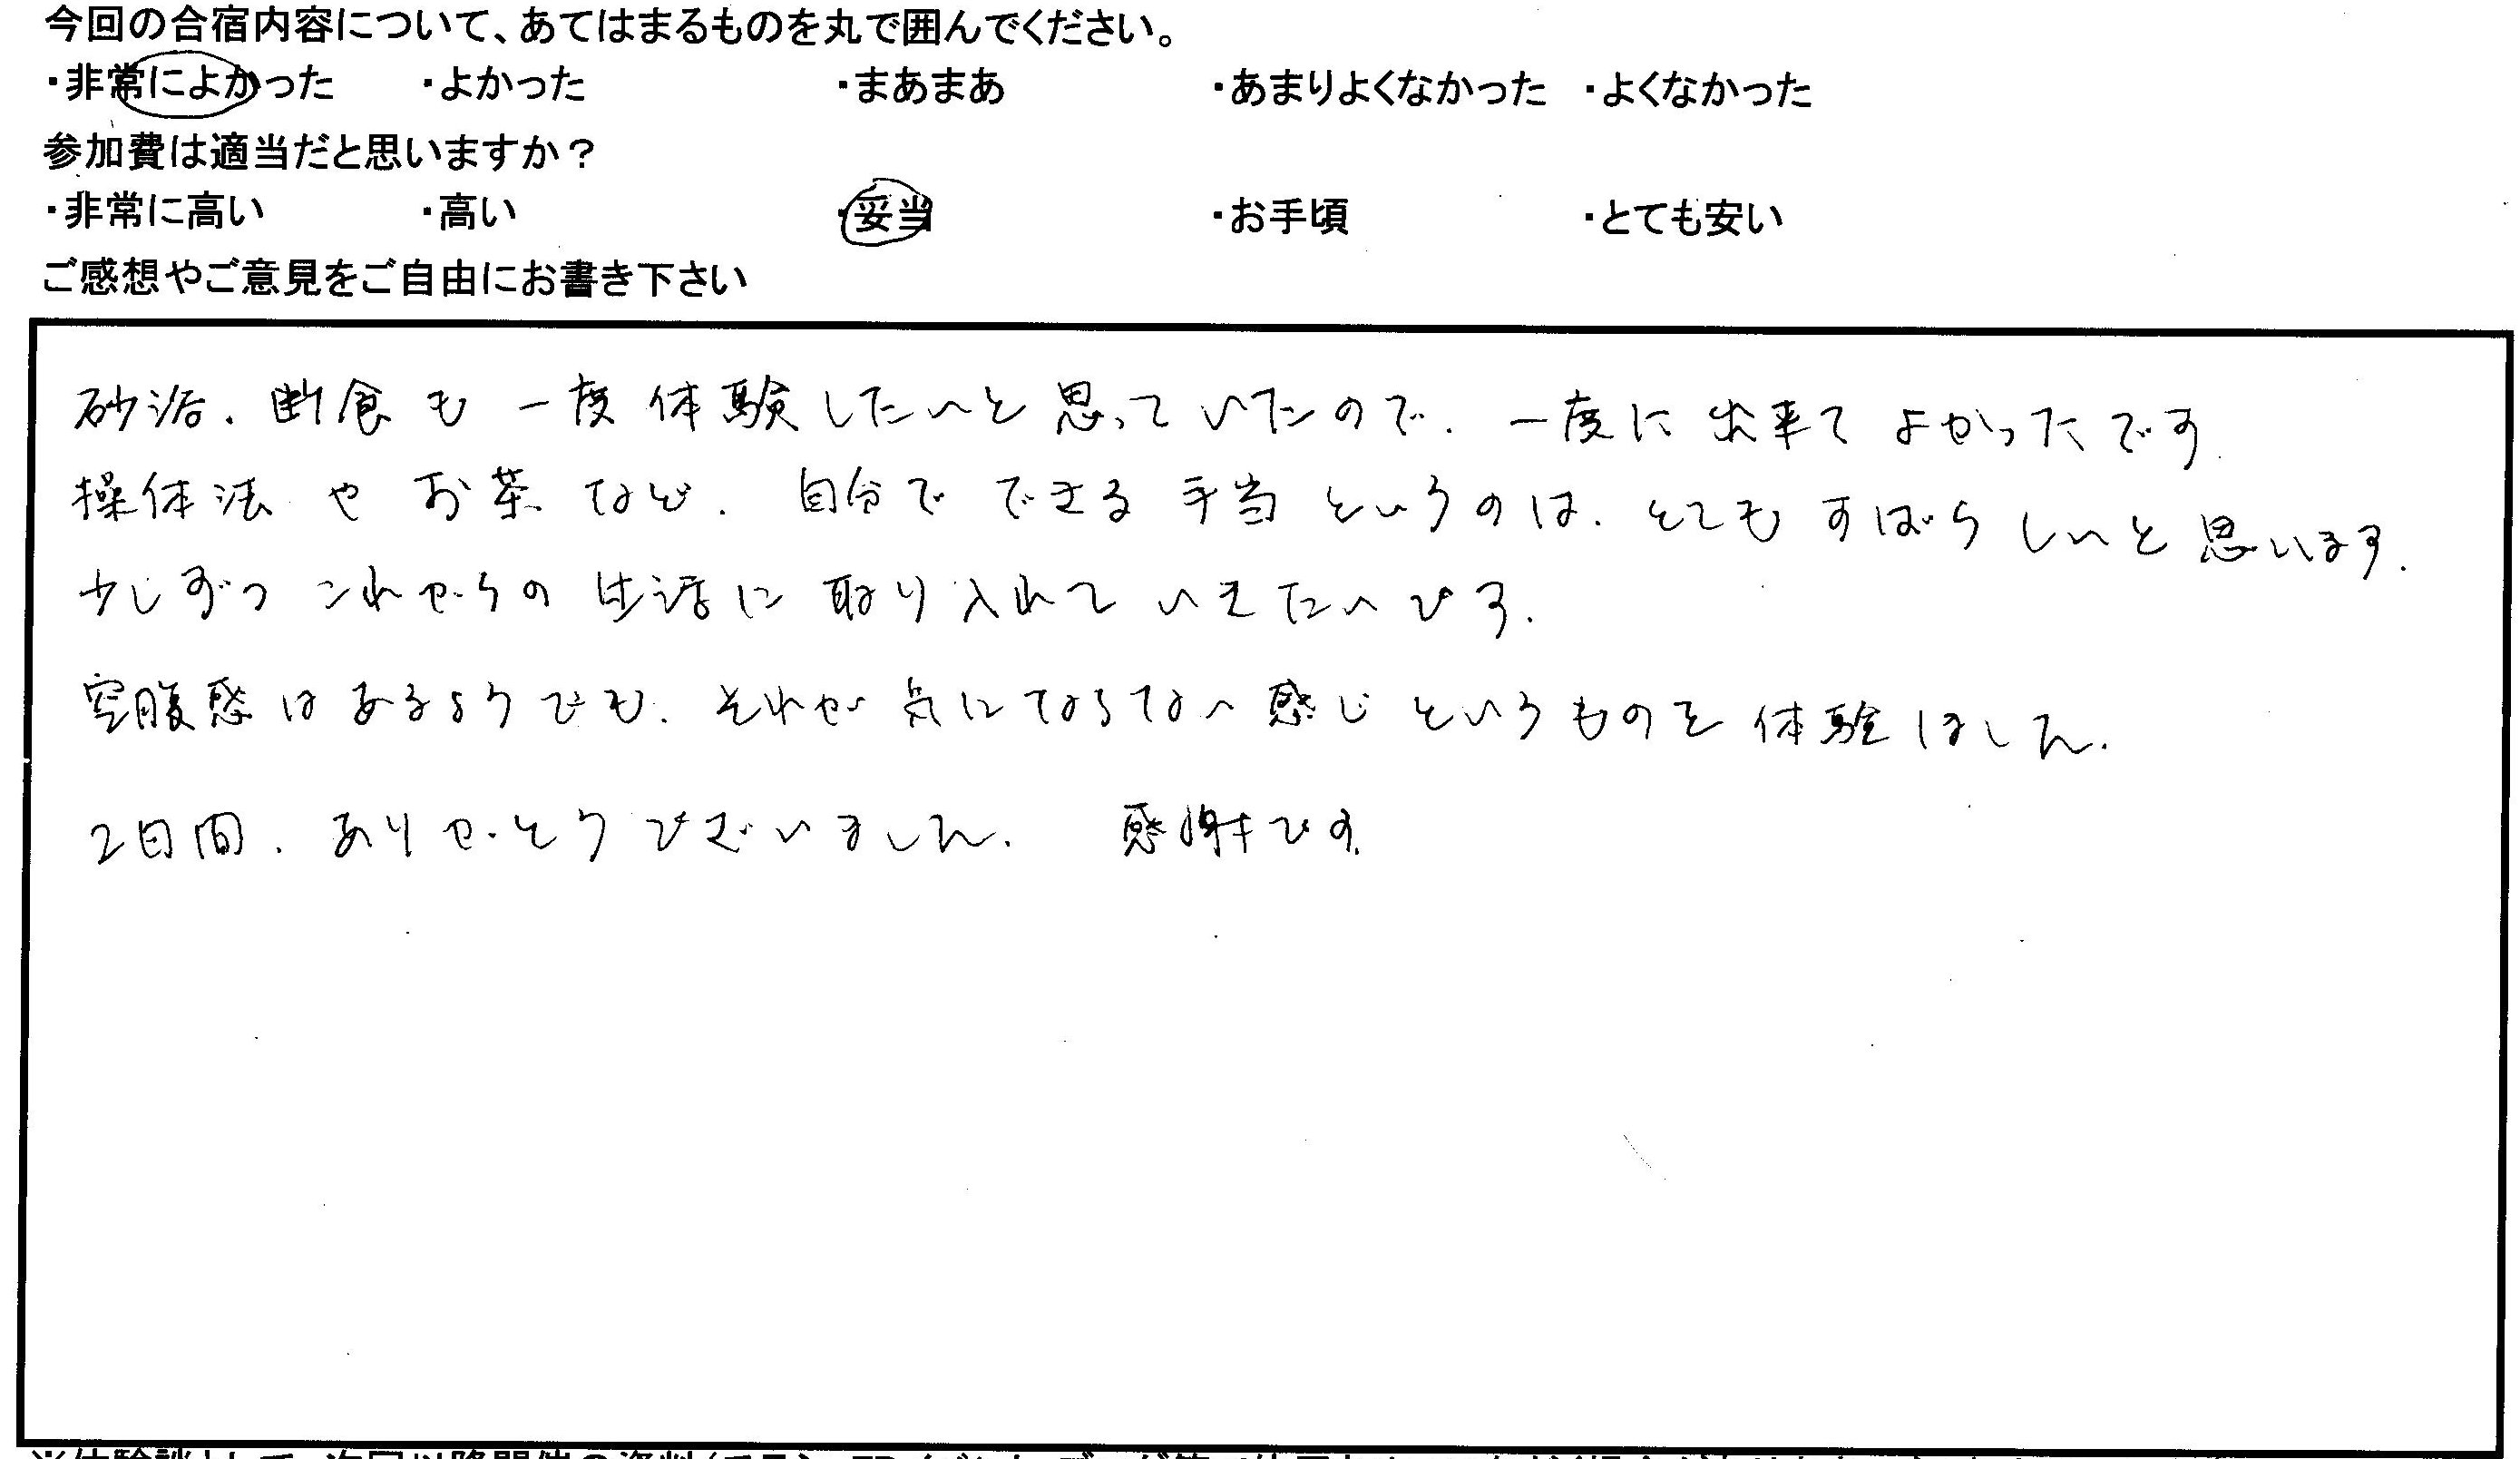 今回の合宿内容について、あてはまるものを丸で囲んでください。
・非常によかった ・よかった ・まあまあ ・あまりよくなかった ・よくなかった
参加費は適当だと思いますか？
・非常に高い ・高い ・妥当 ・お手頃 ・とても安い
ご感想やご意見をご自由にお書き下さい
砂浴、断食も一度体験したいと思っていたので、一度に出来てよかったです
操体法やお茶など、自分でできる手当というのは、とてもすばらしいと思います。
少しずつこれからの生活に取り入れていきたいです。
空腹感はあるようでも、それが気にならない感じというものを体験しました。
2日間、ありがとうございました。 感謝です